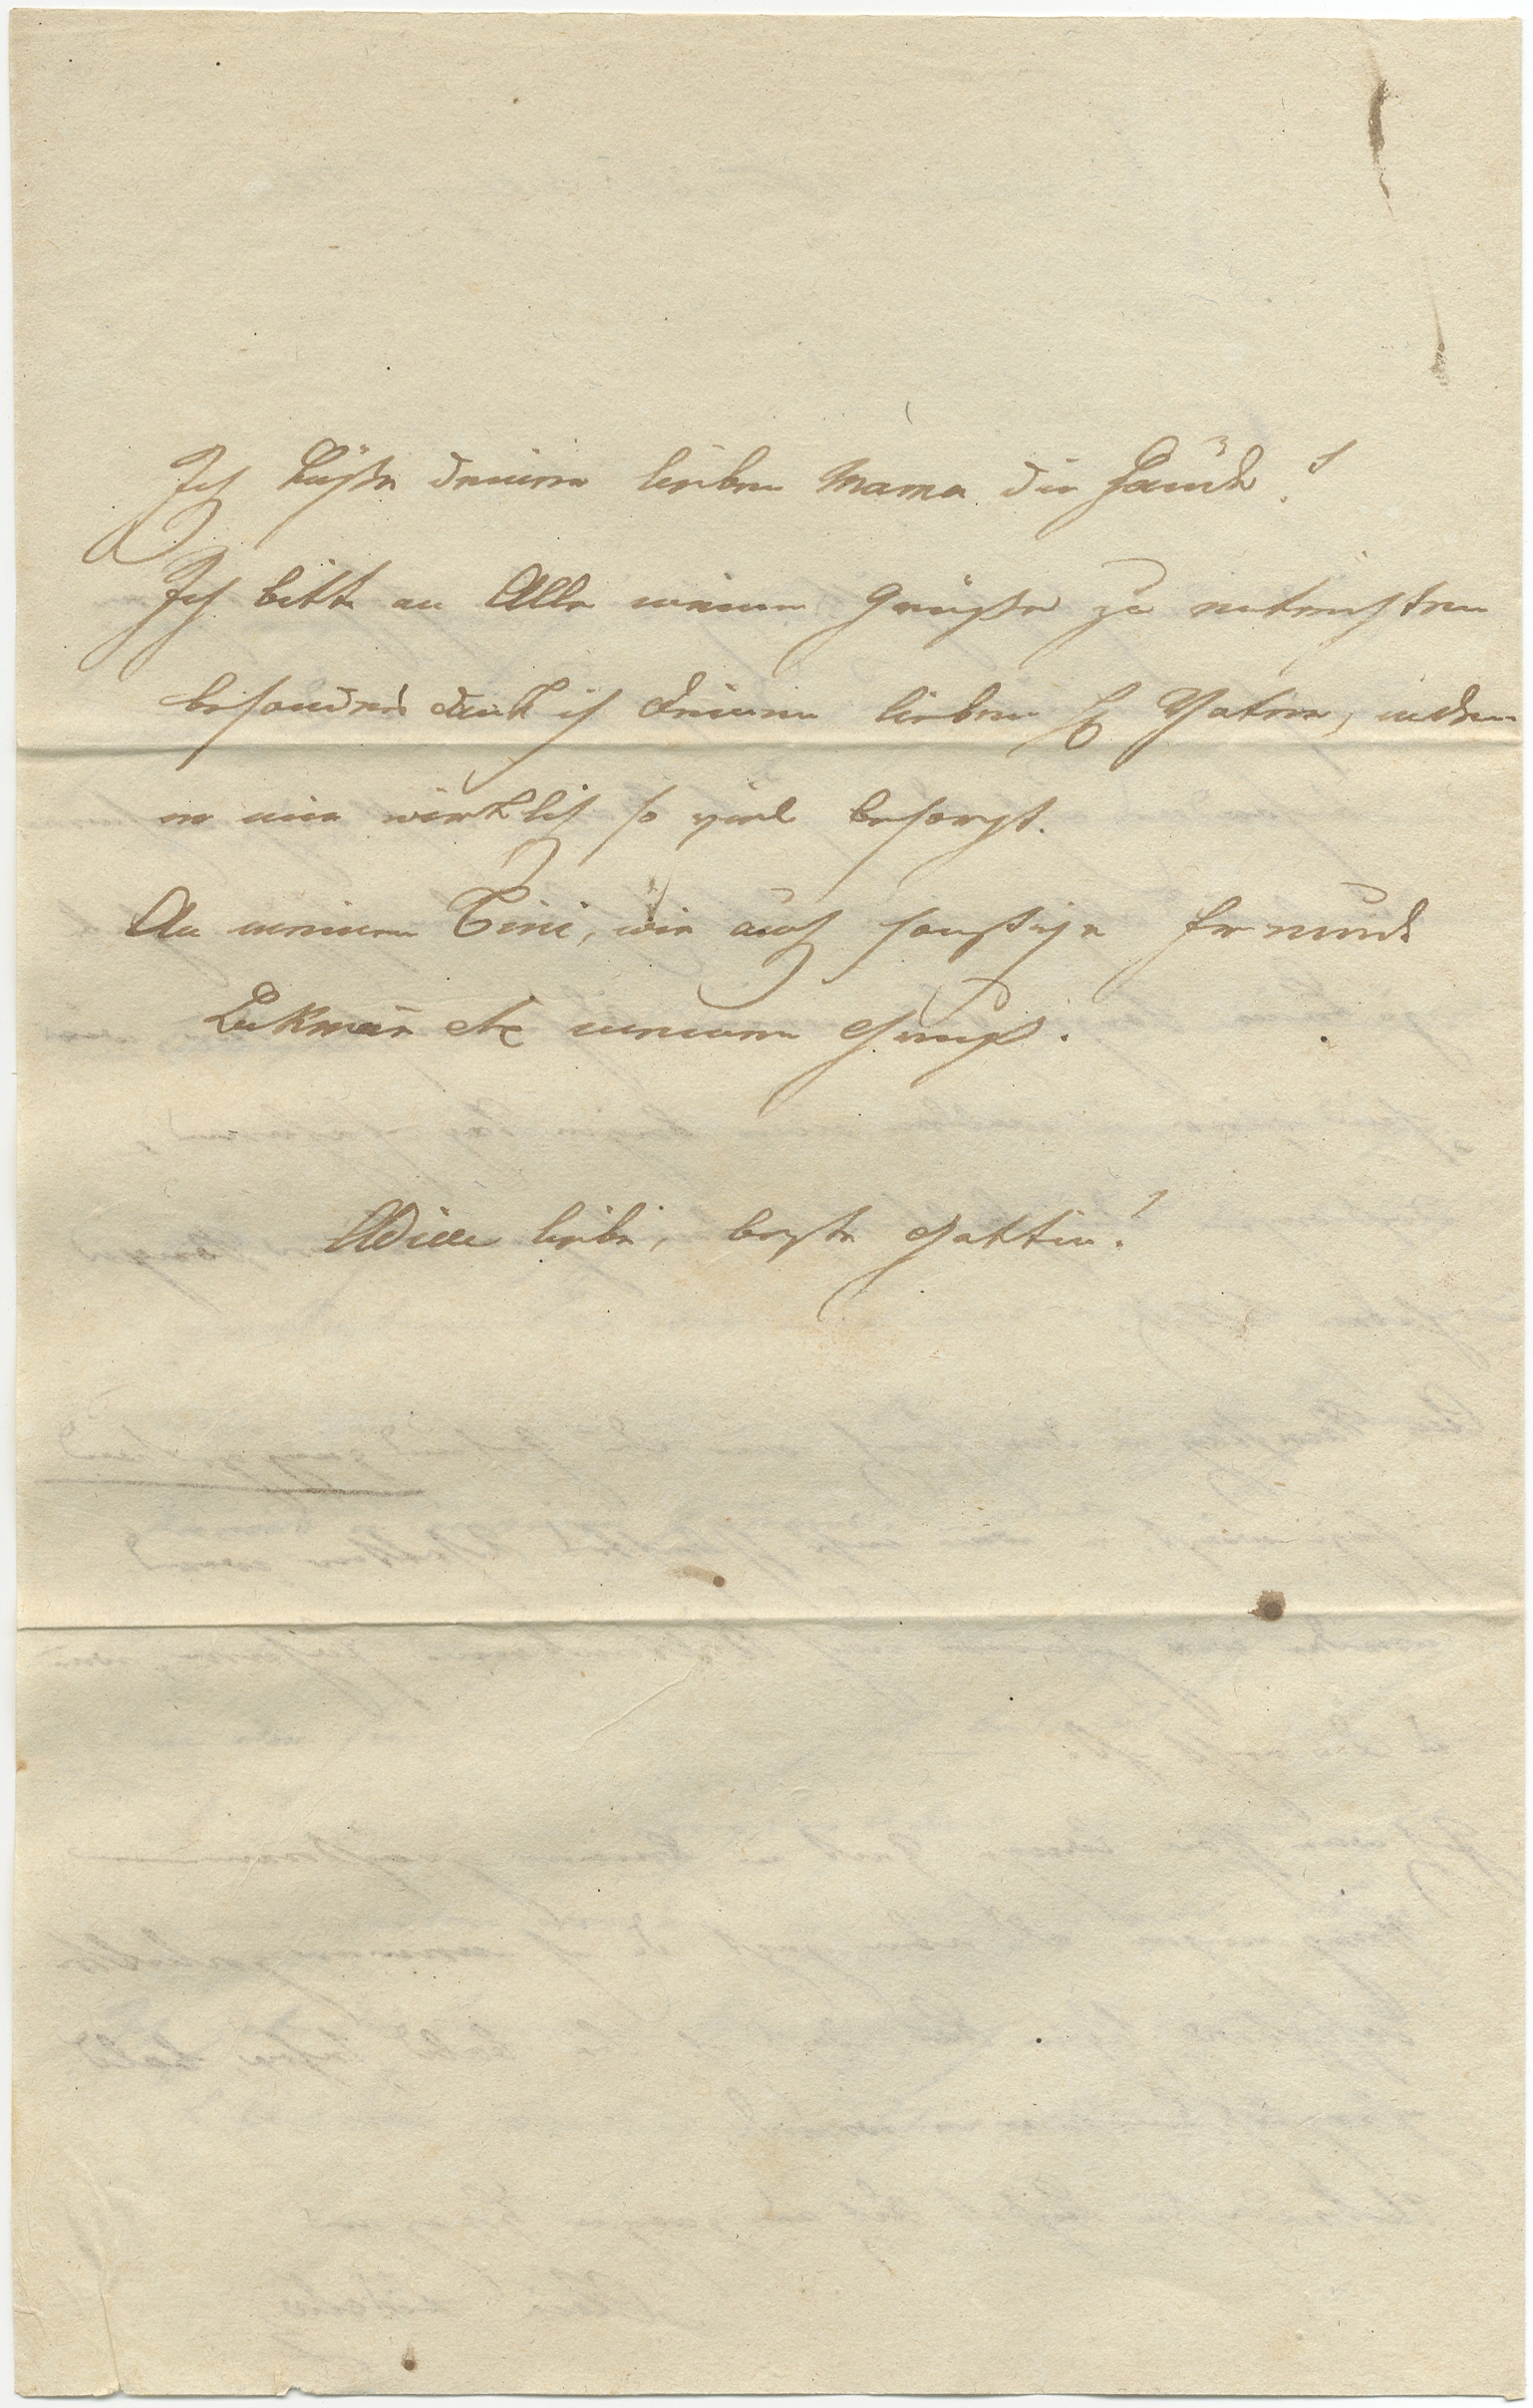 Ich küße deiner lieben Mama die Hände!
Ich bitte an Alle meine Grüße zu entrichten
besonders dank ich deinem lieben H Vater, indem
er mir wirklich so viel besorgt.
An meinen Tini, wie auch sonstige Freunde
etc meinen Gruß.
Adieu liebe, beste Gattin!